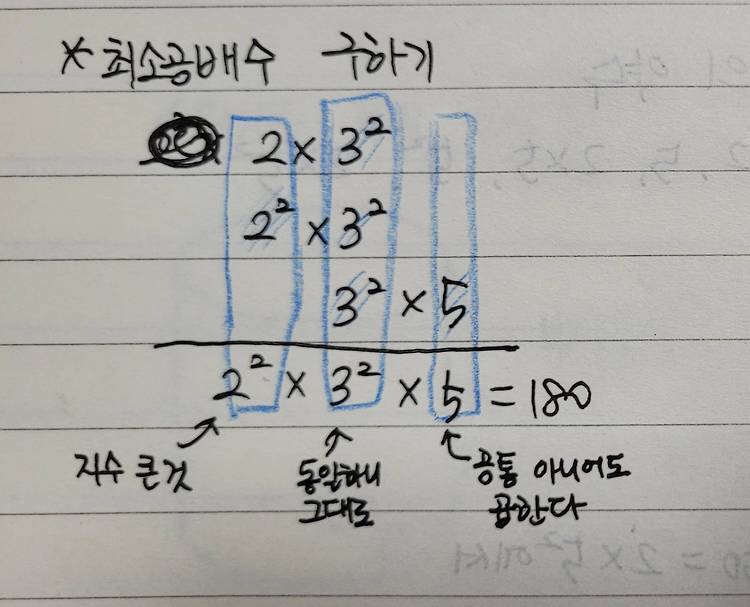 * 최소공배수 구하기
2 × 3²
2² × 3²
3² × 5
2² × 3² × 5 = 180
지수 큰것
동일하니
그대로
공통 아니어도
곱한다